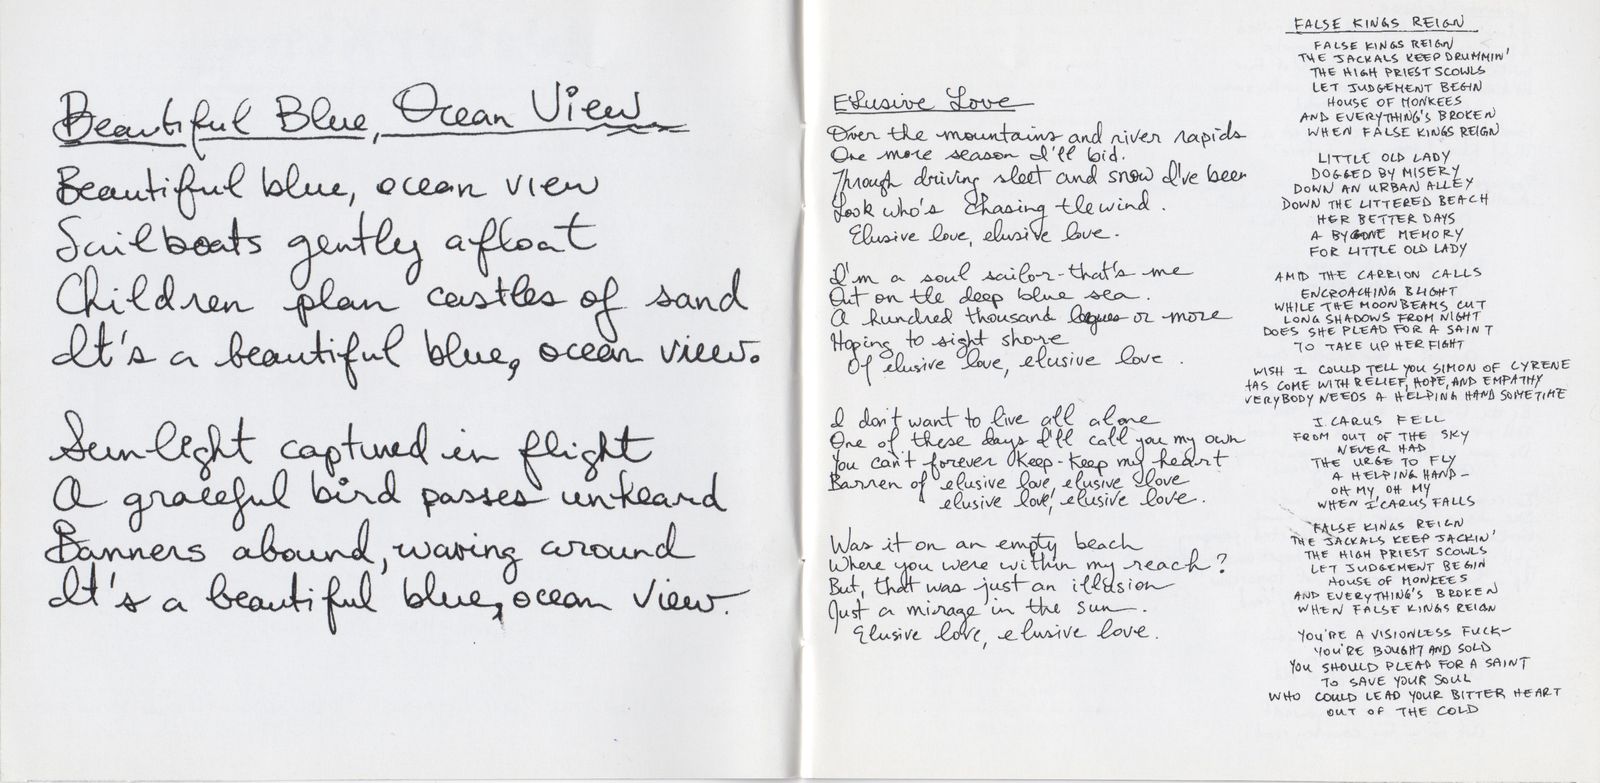 Beautiful Blue, Ocean View
Beautiful blue, ocean view
Sailboats gently afloat
Children plan castles of sand
It's a beautiful blue, ocean view.
Sunlight captured in flight
A graceful bird passes unheard
Banners abound, waving around
It's a beautiful blue, ocean view.
Elusive Love
Over the mountains and river rapids
One more season I'll bid.
Through driving sleet and snow I've been
Look who's Chasing the wind.
Elusive love, elusive love.
I'm a soul sailor-that's me
Out on the deep blue sea.
A hundred thousand leagues or more
Hoping to sight shore
Of elusive love, elusive love.
I don't want to live all alone
One of these days I'll call you my own
You can't forever keep-keep my heart
Barren of elusive love, elusive love
elusive love, elusive love.
Was it on an empty beach
Where you were within my reach?
But, that was just an illusion
Just a mirage in the sun.
Elusive love, elusive love.
FALSE KINGS REIGN
FALSE KINGS REIGN
THE JACKALS KEEP DRUMMIN'
THE HIGH PRIEST SCOWLS
LET JUDGEMENT BEGIN
HOUSE OF MONKEES
AND EVERYTHING'S BROKEN
WHEN FALSE KINGS REIGN
LITTLE OLD LADY
DOGGED BY MISERY
DOWN AN URBAN ALLEY
DOWN THE LITTERED BEACH
HER BETTER DAYS
A BYGONE MEMORY
FOR LITTLE OLD LADY
AMID THE CARRION CALLS
ENCROACHING BLIGHT
WHILE THE MOONBEAMS CUT
LONG SHADOWS FROM NIGHT
DOES SHE PLEAD FOR A SAINT
TO TAKE UP HER FIGHT
WISH I COULD TELL YOU SIMON OF CYRENE
HAS COME WITH RELIEF, HOPE, AND EMPATHY
VERYBODY NEEDS A HELPING HAND SOMETIME
ICARUS FELL
FROM OUT OF THE SKY
NEVER HAD
THE URGE TO FLY
A HELPING HAND-
OH MY, OH MY
WHEN ICARUS FALLS
FALSE KINGS REIGN
THE JACKALS KEEP JACKIN'
THE HIGH PRIEST SCOWLS
LET JUDGEMENT BEGIN
HOUSE OF MONKEES
AND EVERYTHING'S BROKEN
WHEN FALSE KINGS REIGN
YOU'RE A VISIONLESS FUCK-
YOU'RE BOUGHT AND SOLD
YOU SHOULD PLEAD FOR A SAINT
TO SAVE YOUR SOUL
WHO COULD LEAD YOUR BITTER HEART
OUT OF THE COLD